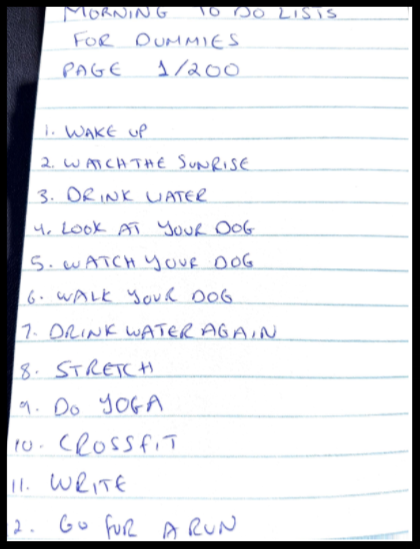 MORNING TO DO LISTS
FOR DUMMIES
PAGE 1/200
1. WAKE UP
2. WATCH THE SUNRISE
3. DRINK WATER
4. LOOK AT YOUR DOG
5. WATCH YOUR DOG
6. WALK YOUR DOG
7. DRINK WATER AGAIN
8. STRETCH
9. DO YOGA
10. CROSSFIT
11. WRITE
2. GO FOR A RUN